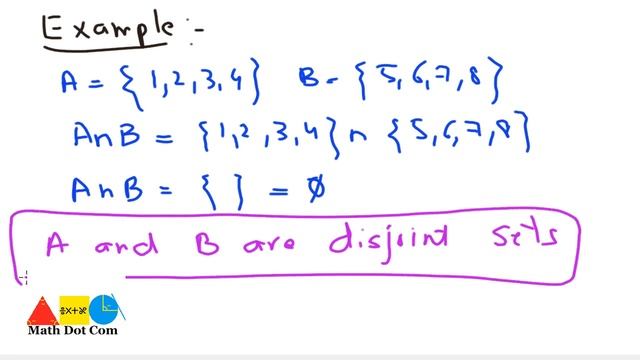 Example :-
A = { 1, 2, 3, 4 } B = { 5, 6, 7, 8 }
A ∩ B = { 1, 2, 3, 4 } ∩ { 5, 6, 7, 8 }
A ∩ B = { } = ∅
A and B are disjoint sets
Math Dot Com